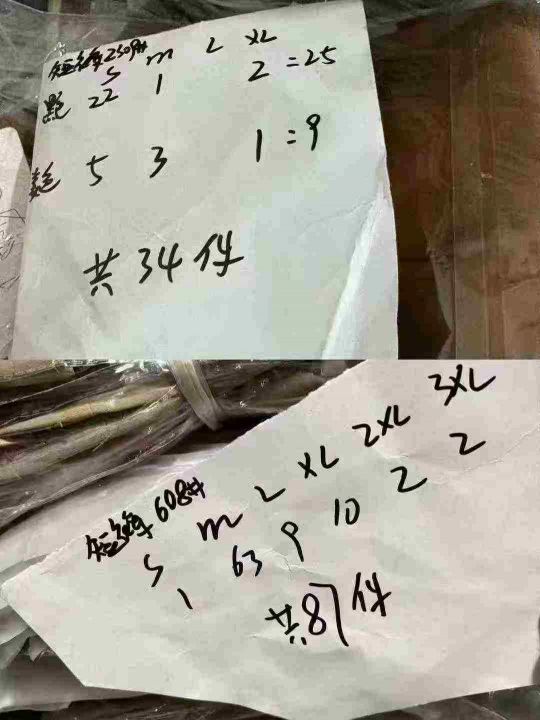 2509#
S m L XL
黑 22 1 2 =25
5 3 1 =9
共 34 件
608#
S m L XL 2XL 3XL
1 63 9 10 2 2
共87件